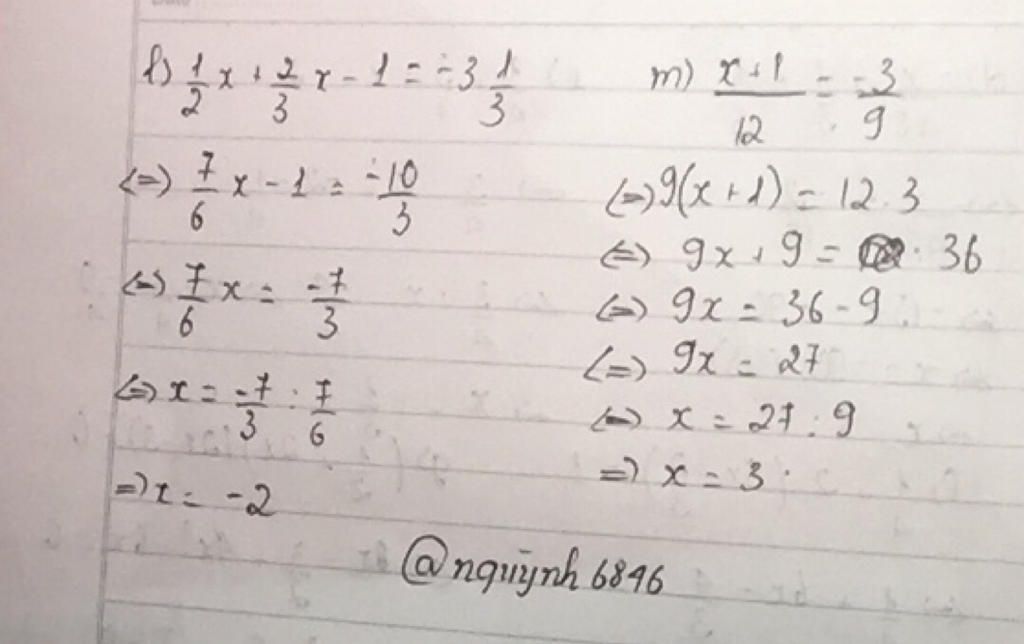 l) 1/2 x + 2/3 x - 1 = -3 1/3
<=> 7/6 x - 1 = -10/3
<=> 7/6 x = -7/3
<=> x = -7/3 : 7/6
=> x = -2
m) x+1/12 = -3/9
<=> 9(x+1) = 12.3
<=> 9x + 9 = 36
<=> 9x = 36 - 9
<=> 9x = 27
<=> x = 27 : 9
=> x = 3.
@nquỳnh 6846